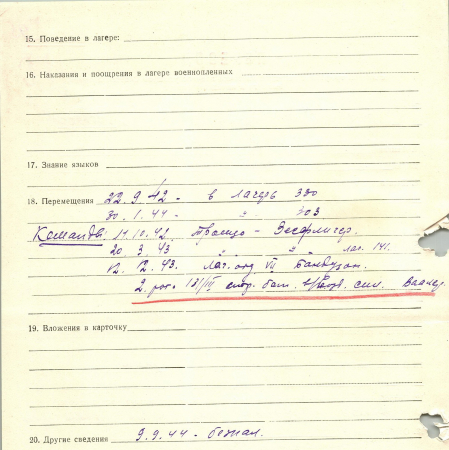 15. Поведение в лагере:
16. Наказания и поощрения в лагере военнопленных
17. Знание языков
18. Перемещения 22.9.42 - в лагерь 330
30.1.44 - " - 303
Команды: 14.10.42.
20.3.43 " " лаг. 141.
12.12.43. Лаг. отд. VII
2. рот. стр. бат.
19. Вложения в карточку
20. Другие сведения 9.9.44 - бежал.